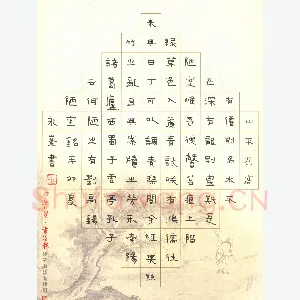 山不在高
有僊則名水不
在深有龍則靈斯是
陋室惟吾德馨苔痕上階
綠草色入簾青談笑有鴻儒往
來無白丁可以調素琴閱金經無絲
竹之亂耳無案牘之勞形南陽
諸葛廬西蜀子雲亭孔子
云何陋之有劉禹錫
陋室銘辛卯夏